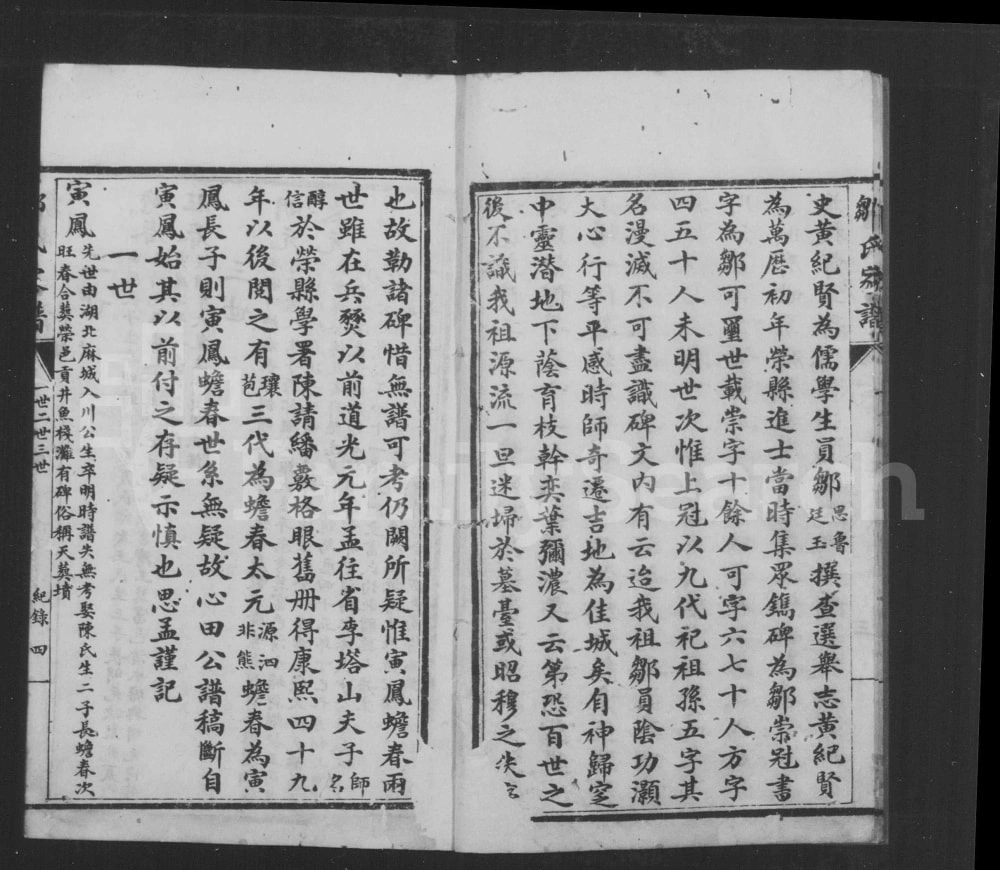 鄒氏族譜
史黃紀賢為儒學生員鄒思魯廷玉撰查選舉志黃紀賢
為萬歷初年榮縣進士當時集眾鐫碑為鄒崇冠書
字為鄒可璽世載崇字十餘人可字六七十人方字
四五十人未明世次惟上冠以九代祀祖孫五字其
名漫滅不可盡識碑文內有云迨我祖鄒員陰功灝
大心行等平感時師奇遷吉地為佳城矣自神歸窆
中靈潛地下蔭育枝幹奕葉彌濃又云第恐百世之
後不識我祖源流一旦迷埽於墓臺或昭穆之失云
也故勒諸碑惜無譜可考仍闕所疑惟寅鳳蟾春兩
世雖在兵燹以前道光元年孟往省李塔山夫子師名
醇信於榮縣學署陳請繙數格眼舊册得康熙四十九
年以後閱之有瓌芑三代為蟾春太元源泗非熊蟾春為寅
鳳長子則寅鳳蟾春世系無疑故心田公譜稿斷自
寅鳳始其以前付之存疑示慎也思孟謹記
一世
寅鳳先世由湖北麻城入川公生卒明時譜失無考娶陳氏生二子長蟾春次
旺春合葬榮邑貢井魚棧灘有碑俗稱天葬墳
一世二世三世 紀錄 四
FamilySearch